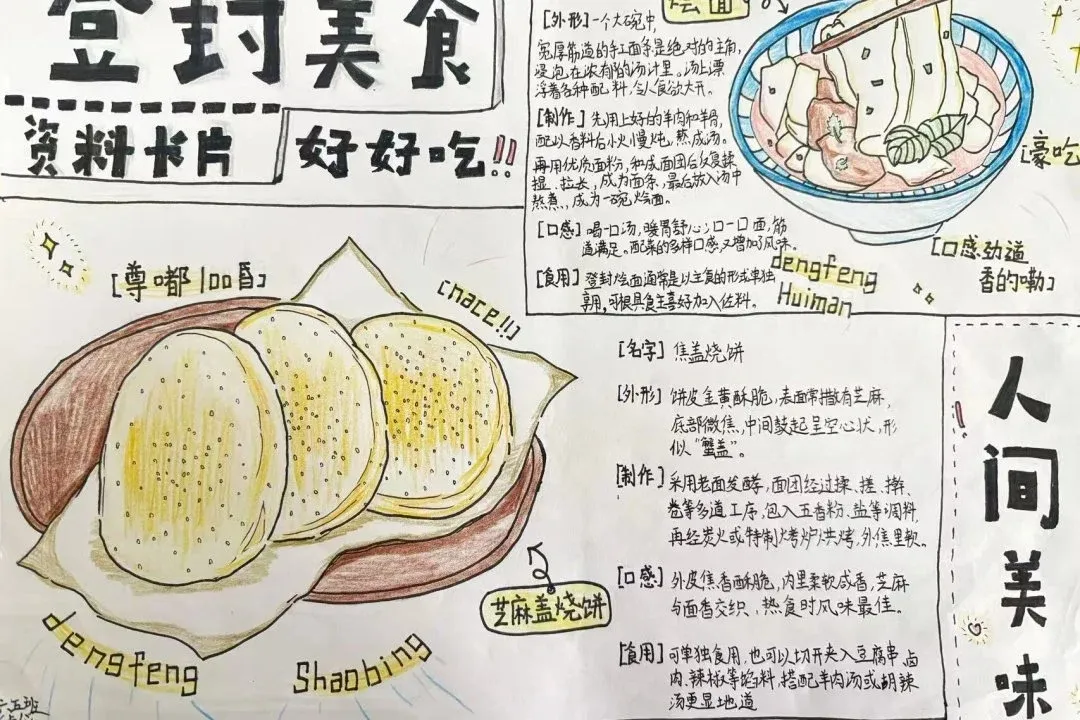 登封美食
资料卡片
好好吃!!
烩面
[外形]一个大碗中,
宽厚筋道的手工面条是绝对的主角,
浸泡在浓郁的汤汁里。汤上漂
浮着各种配料,令人食欲大开。
[制作]先用上好的羊肉和羊骨,
配以香料后小火慢炖,熬成汤。
再用优质面粉,和成面团后反复揉
捏、拉长,成为面条,最后放入汤中
熬煮,成为一碗烩面。
[口感]喝一口汤,暖胃舒心;口一口面,筋
道满足。配菜的多样口感,又增加了风味。
[食用]登封烩面通常是以主食的形式单独
享用,可根具食主喜好加入佐料。
[豪吃
[口感劲道
香的嘞]
dengfeng
Huiman
[尊嘟100昏]
[nace!!]
芝麻盖烧饼
dengfeng
Shaobing
[名字]焦盖烧饼
[外形]饼皮金黄酥脆,表面常撒有芝麻,
底部微焦,中间鼓起呈空心状,形
似“蟹盖”。
[制作]采用老面发酵,面团经过揉、搓、擀、
卷等多道工序,包入五香粉、盐等调料,
再经炭火或特制烤炉烘烤,外焦里软。
[口感]外皮焦香酥脆,内里柔软咸香,芝麻
与面香交织,热食时风味最佳。
[食用]可单独食用,也可以切开夹入豆腐串、卤
肉、辣椒等馅料,搭配羊肉汤或胡辣
汤更显地道
人间美味
五班